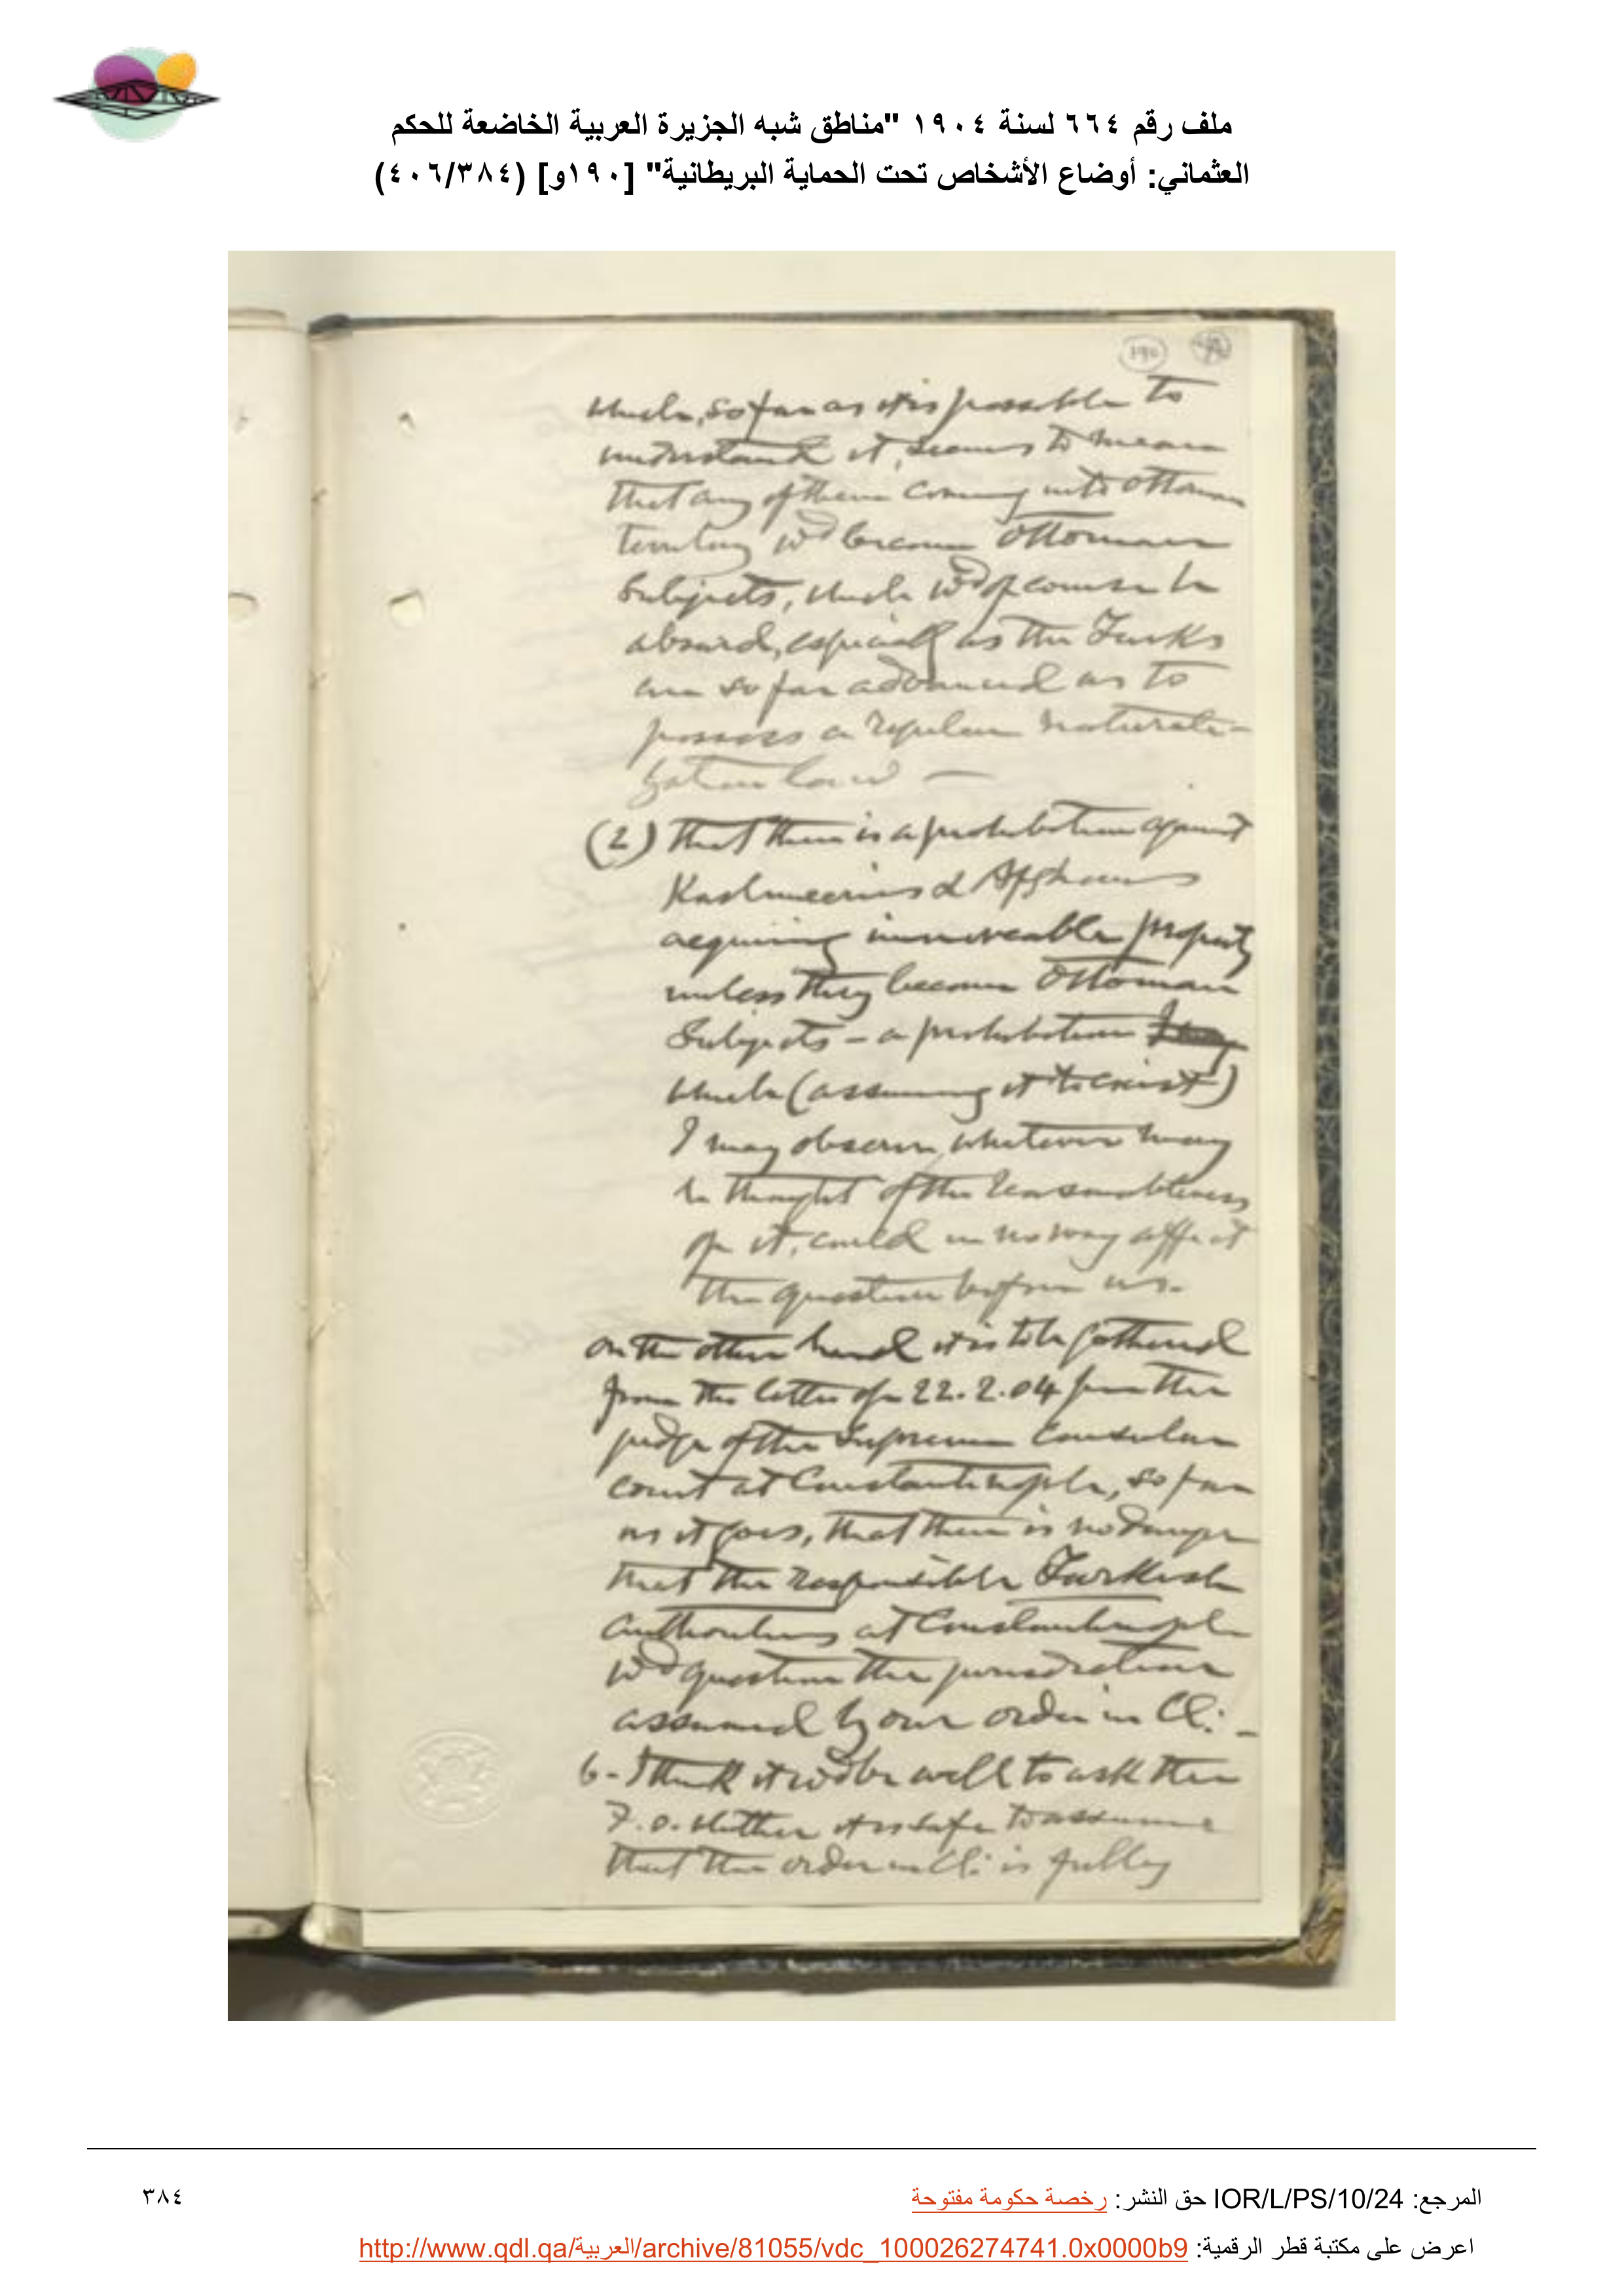 ملف رقم ٦٦٤ لسنة ١٩٠٤ "مناطق شبه الجزيرة العربية الخاضعة للحكم
العثماني: أوضاع الأشخاص تحت الحماية البريطانية" [١٩٠و] (٤٠٦/٣٨٤)
190
which, so far as it is possible to
understand it, seems to mean
that any of them coming into Ottoman
territory wd become Ottoman
Subjects, which wd of course be
absurd, especially as the Turks
are so far advanced as to
possess a regular naturali-
zation law —
(2) that there is a prohibition against
Kashmeeris & Afghans
acquiring immoveable property
unless they become Ottoman
Subjects - a prohibition
which (assuming it to exist)
I may observe, whatever may
be thought of the reasonableness
of it, could in no way affect
the question before us.
On the other hand it is to be gathered
from the letter of 22.2.04 from the
judge of the Supreme Consular
Court at Constantinople, so far
as it goes, that there is no danger
that the responsible Turkish
authorities at Constantinople
wd question the jurisdiction
assumed by our order in Cl: -
6 - I think it wd be well to ask the
F.O. whether it is safe to assume
that the order in Cl: is fully
المرجع: IOR/L/PS/10/24 حق النشر: رخصة حكومة مفتوحة
٣٨٤
اعرض على مكتبة قطر الرقمية: http://www.qdl.qa/العربية/archive/81055/vdc_100026274741.0x0000b9